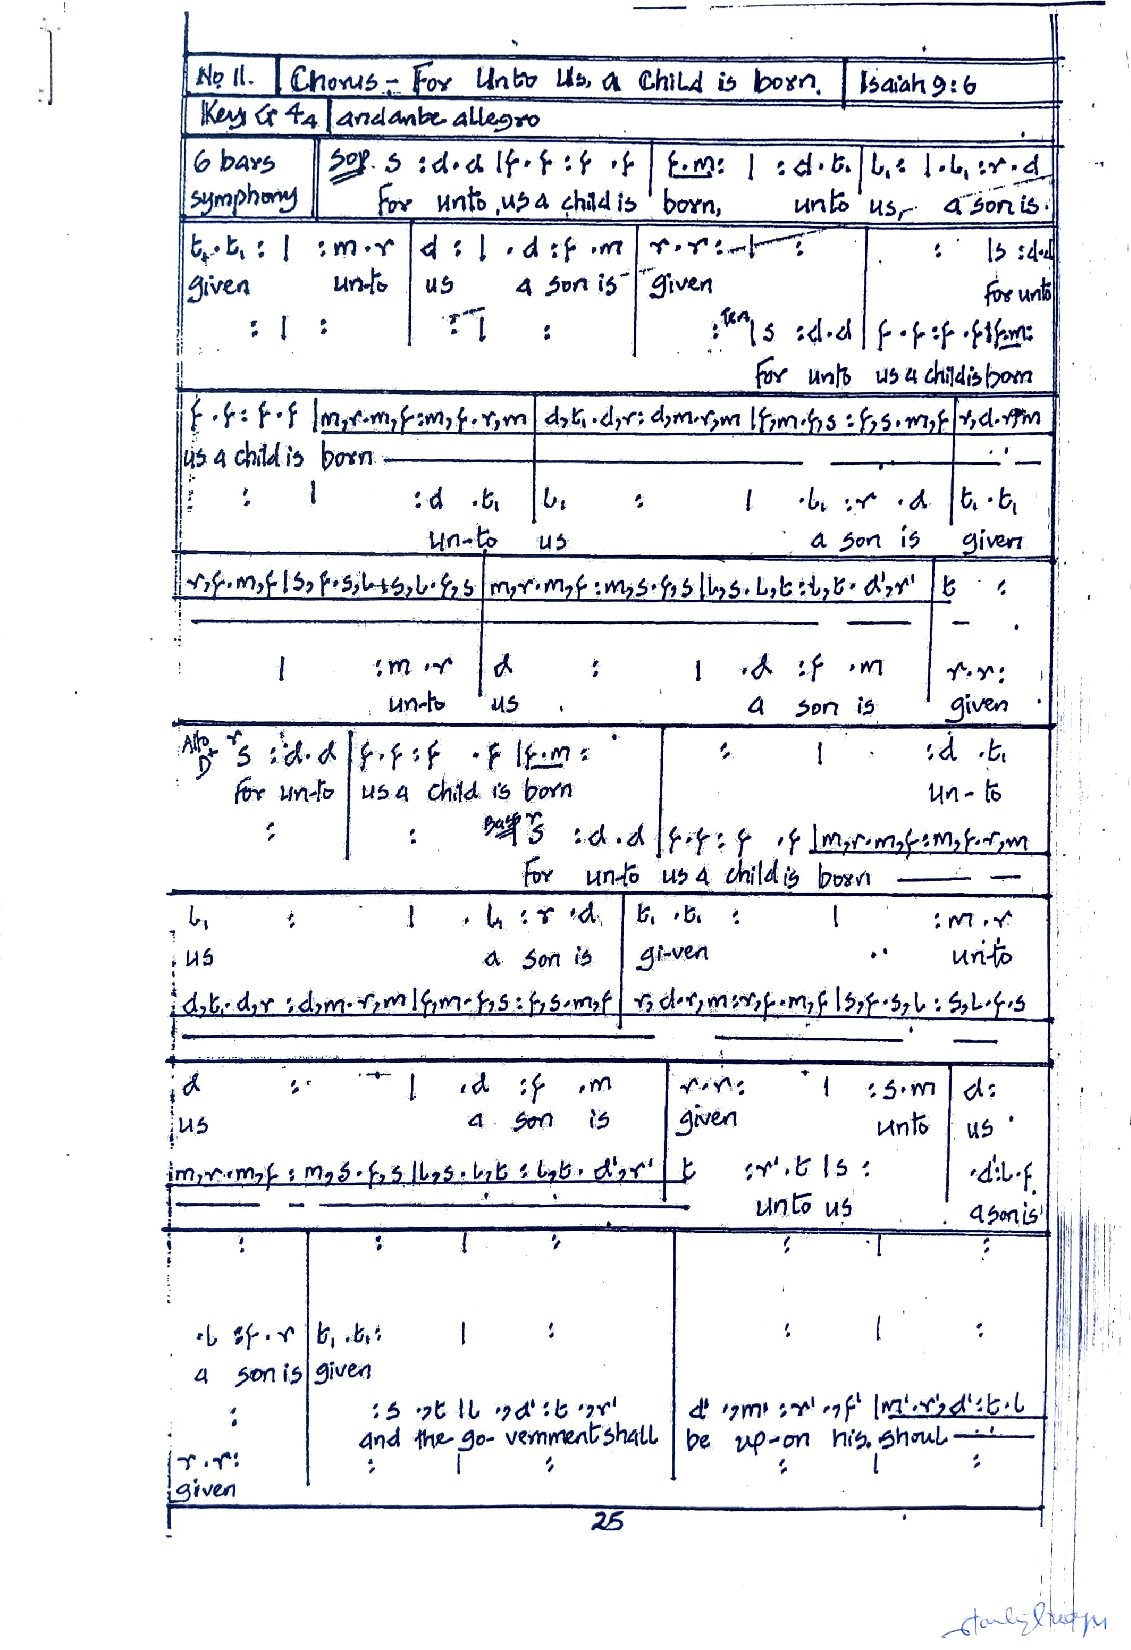 No 11. Chorus - For Unto Us, a Child is born. Isaiah 9:6
Key G 4/4 andante allegro
6 bars Sop. s :d.d |f.f :f .f | f.m: | :d.t₁ | l₁: |.l₁ :r.d
symphony For unto us a child is born, unto us, a son is
t₁.t₁ : | :m.r | d : | .d :f .m | r.r: - | : | : |s :d.d
given unto us a son is given for unto
: | : | : | : | : Ten |s :d.d | f.f :f .f |f.m:
For unto us a child is born
f.f: f.f |m,r.m,f:m,f.r,m | d,t₁.d,r: d,m.r,m |f,m.f,s : f,s.m,f | r,d.r,m
us a child is born
: | :d .t₁ | l₁ : | .l₁ :r .d | t₁.t₁
un-to us a son is given
r,f.m,f |s,f.s,l:s,l.f,s | m,r.m,f :m,s.f,s |l,s.l,t :l,t.d',r' | t :
| :m.r | d : | .d :f .m | r.r:
un-to us a son is given
Alto D r s :d.d | f.f :f .f |f.m : | : | :d .t₁
for un-to us a child is born un-to
: | : Bass r s :d.d | f.f: f .f |m,r.m,f:m,f.r,m
for un-to us a child is born
l₁ : | .l₁ :r .d | t₁ .t₁ : | :m.r
us a son is gi-ven unto
d,t₁.d,r :d,m.r,m |f,m.f,s :f,s.m,f | r,d.r,m:r,f.m,f |s,f.s,l : s,l.f.s
d : | .d :f .m | r.r: | :s.m | d:
us a son is given unto us
m,r.m,f : m,s.f,s |l,s.l,t : l,t.d',r' | t :r'.t |s : | .d':l.f
unto us a son is
: | : | : | : | :
.l :f.r | t₁.t₁: | : | : | :
a son is given
: | :s .,t |l .,d' :t .,r' | d' .,m' :r' .,f' |m'.r',d':t.l
and the go-vernment shall be up-on his shoul
r.r: | : | : | : | :
given
25